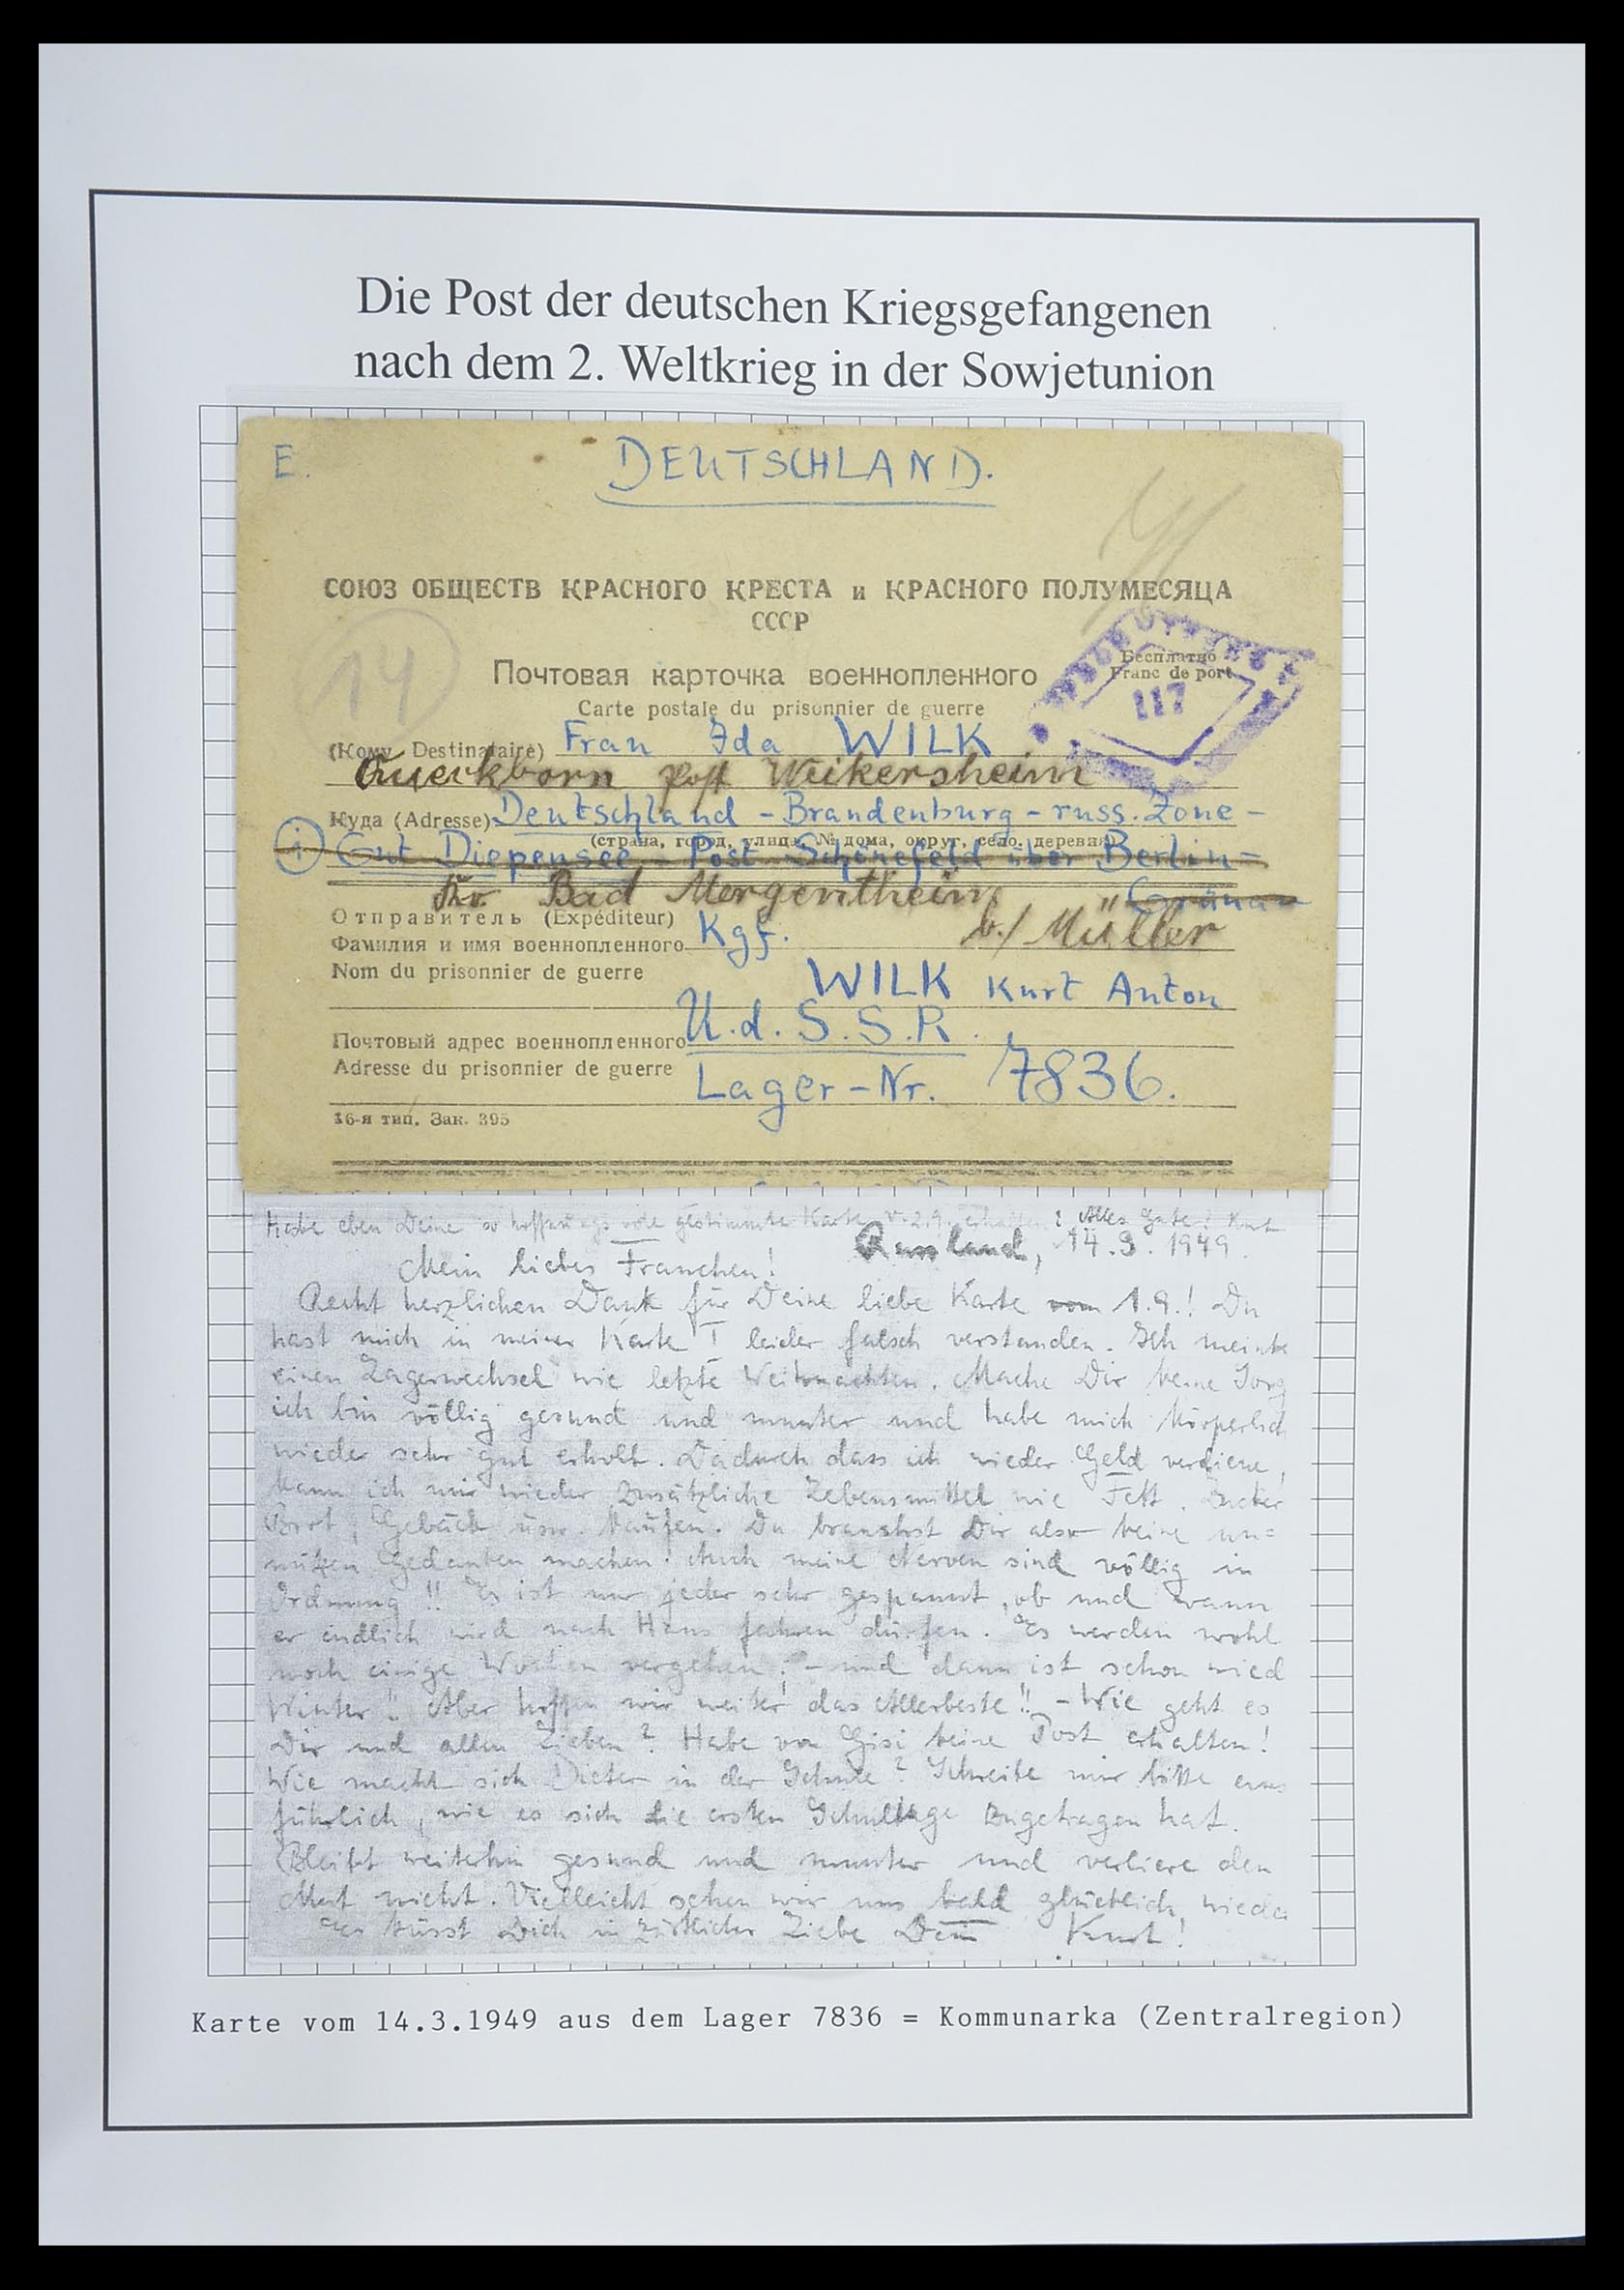 Die Post der deutschen Kriegsgefangenen
nach dem 2. Weltkrieg in der Sowjetunion
E. DEUTSCHLAND.
СОЮЗ ОБЩЕСТВ КРАСНОГО КРЕСТА и КРАСНОГО ПОЛУМЕСЯЦА
СССР
14
Почтовая карточка военнопленного
Carte postale du prisonnier de guerre
Бесплатно
Franc de port
117
(Кому Destinataire) Frau Ida WILK
Queckbronn Post Weikersheim
Куда (Adresse) Deutschland - Brandenburg - russ. Zone -
(страна, город, улица, № дома, округ, село, деревня)
Gut Diepensee - Post Schönefeld über Berlin =
Kr. Bad Mergentheim Grünau
Отправитель (Expéditeur)
b./ Müller
Фамилия и имя военнопленного Kgf.
Nom du prisonnier de guerre
WILK Kurt Anton
Почтовый адрес военнопленного U.d.S.S.R.
Adresse du prisonnier de guerre Lager-Nr. 7836.
16-я тип. Зак. 395
Habe eben Deine so hoffnungsvoll gestimmte Karte v. 2.9. erhalten! Alles Gute! Kurt
Russland, 14.9.1949.
Mein liebes Frauchen!
Recht herzlichen Dank für Deine liebe Karte vom 1.9.! Du
hast mich in meiner Karte leider falsch verstanden. Ich meinte
einen Lagerwechsel wie letzte Weihnachten. Mache Dir keine Sorg
ich bin völlig gesund und munter und habe mich körperlich
wieder sehr gut erholt. Dadurch dass ich wieder Geld verdiene,
kann ich mir wieder zusätzliche Lebensmittel wie Fett, Zucker
Brot, Gebäck usw. kaufen. Du brauchst Dir also keine un=
nützen Gedanken machen! Auch meine Nerven sind völlig in
Ordnung!! Es ist nur jeder sehr gespannt, ob und wann
er endlich wird nach Haus fahren dürfen. Es werden wohl
noch einige Wochen vergehen! - und dann ist schon wied
Winter!! Aber hoffen wir weiter das Allerbeste!! - Wie geht es
Dir und allen Lieben? Habe von Gisi keine Post erhalten!
Wie macht sich Dieter in der Schule? Schreibe mir bitte aus
führlich, wie es sich die ersten Schultage zugetragen hat.
Bleibt weiterhin gesund und munter und verliere den
Mut nicht. Vielleicht sehen wir uns bald glücklich wieder
Es küsst Dich in zärtlicher Liebe Dein Kurt!
Karte vom 14.3.1949 aus dem Lager 7836 = Kommunarka (Zentralregion)